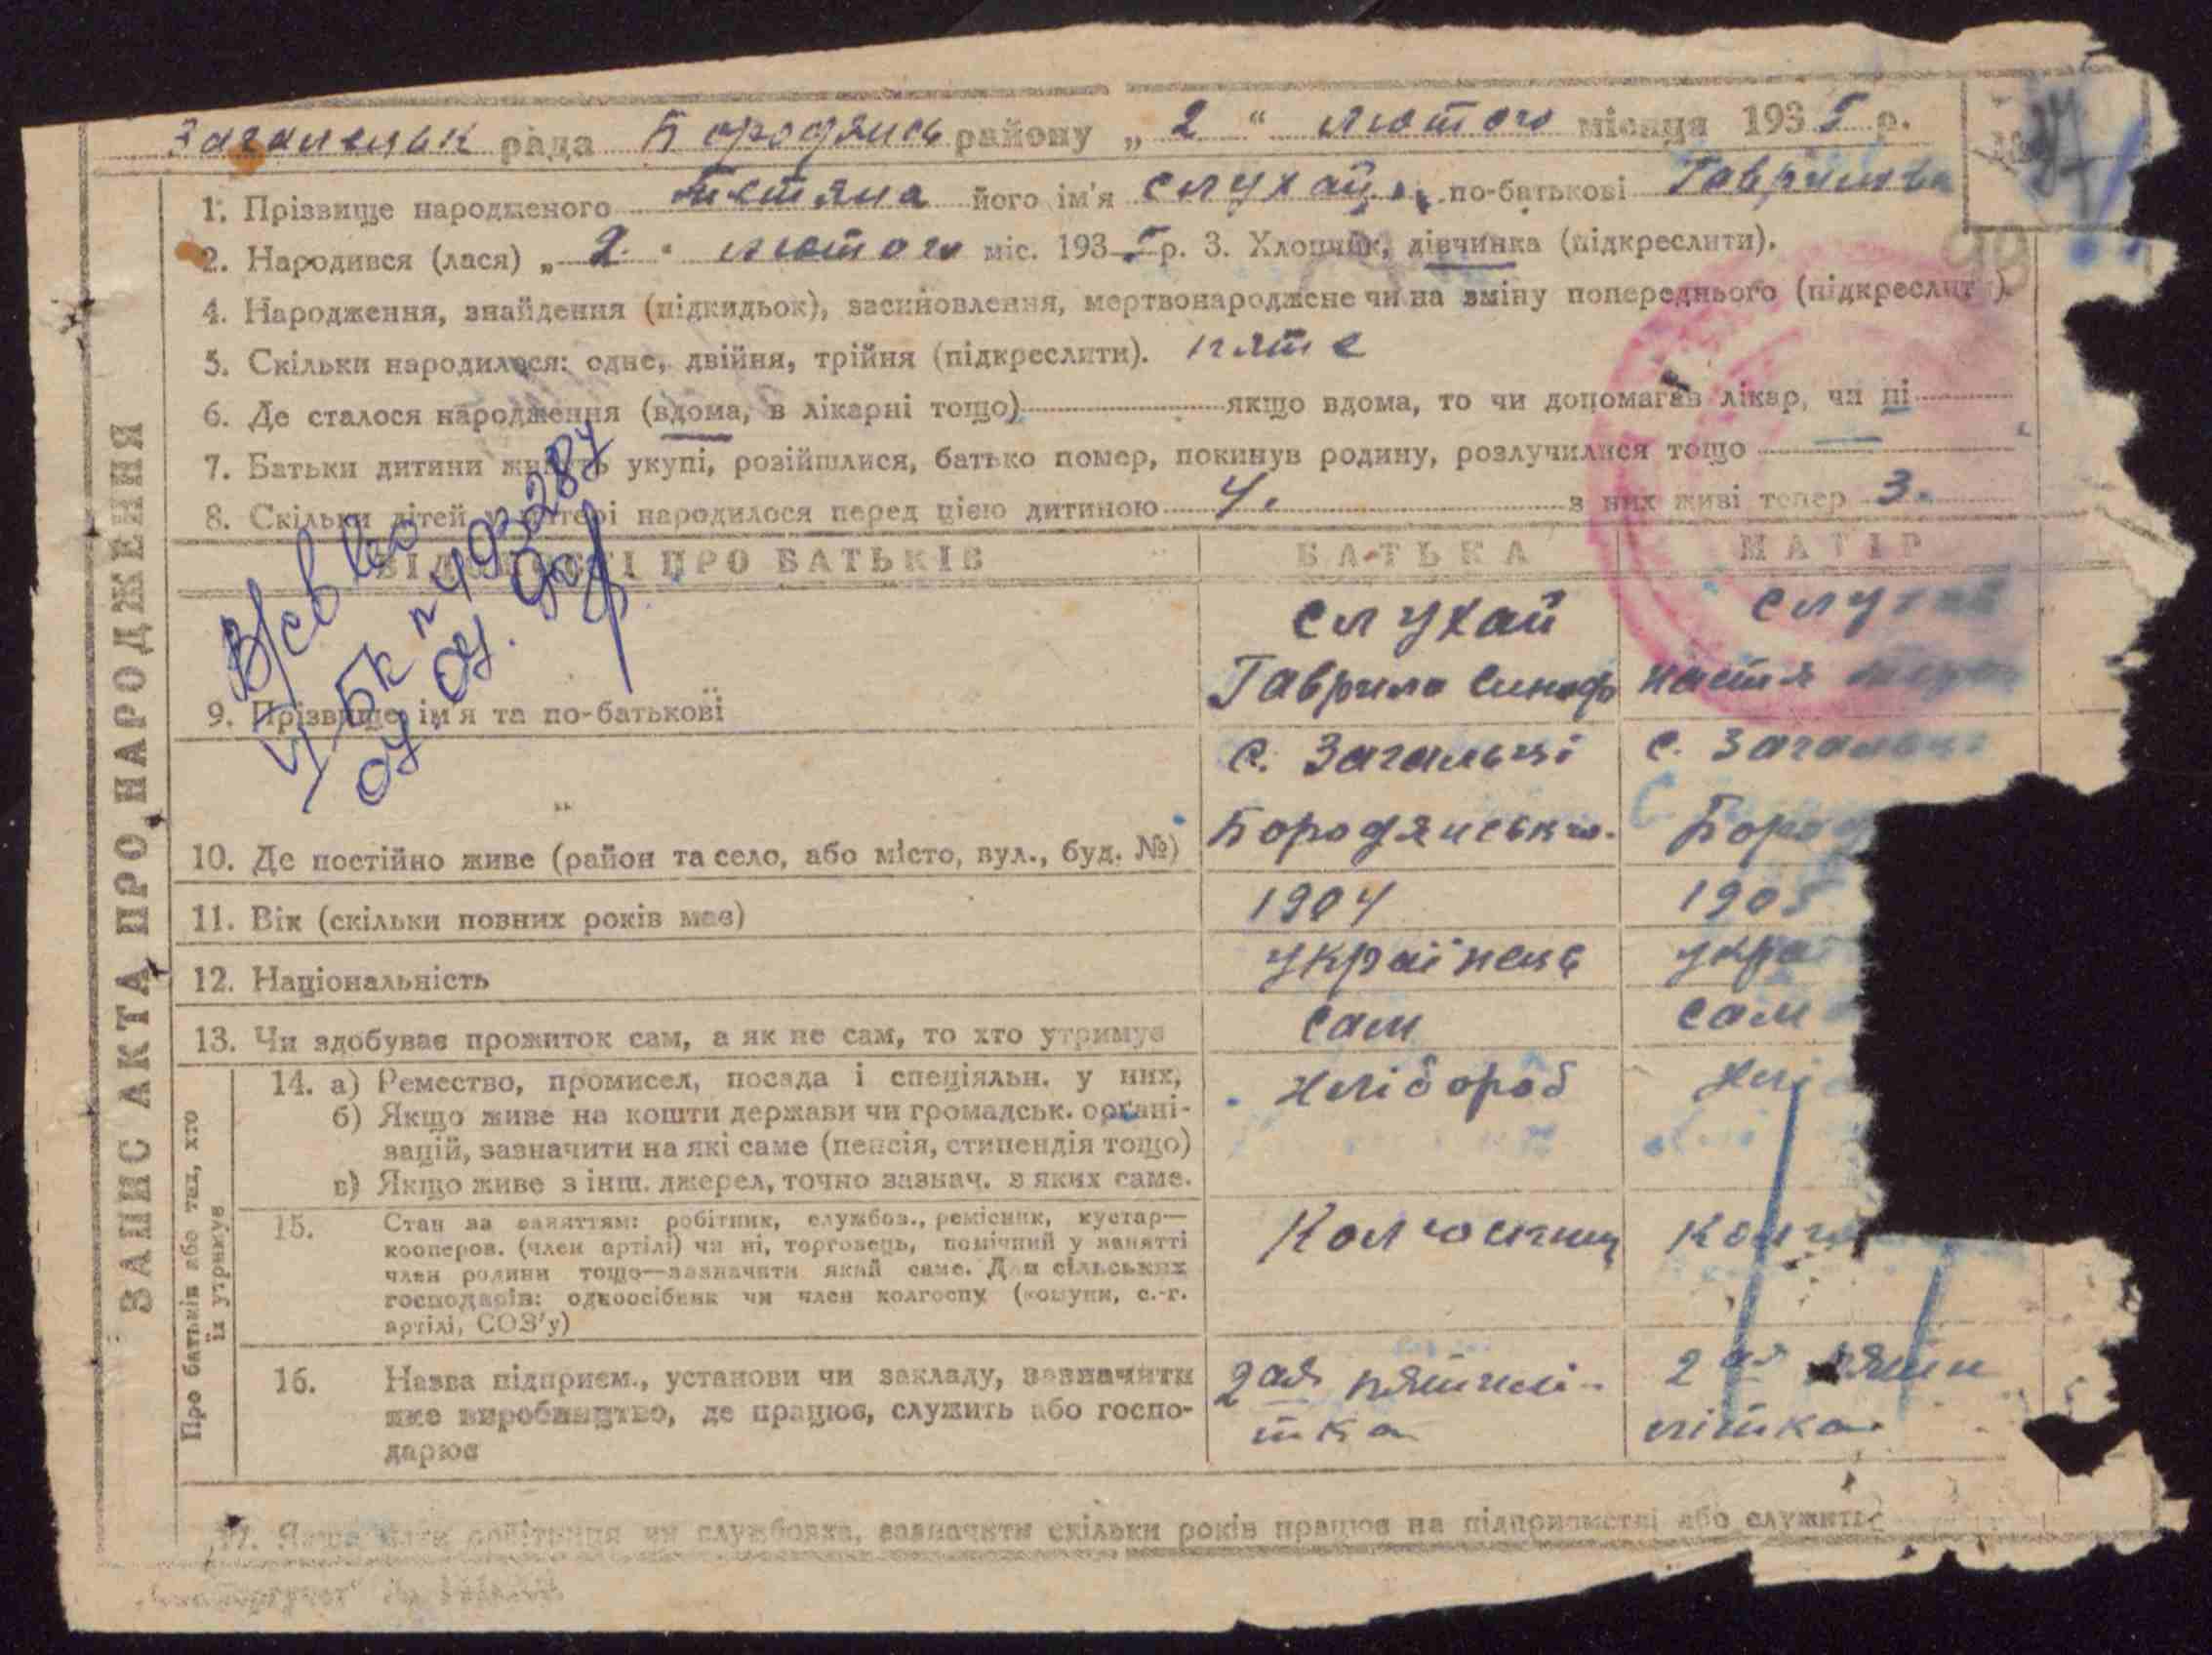 Загалецьк рада Бородянсь району „ 2 “ лютого місяця 1935 р. №
1. Прізвище народженого Тетяна його ім'я Слухай по-батькові Гаврилівн
2. Народився (лася) „ 2 “ лютого міс. 1935 р. 3. Хлопчик, дівчинка (підкреслити).
4. Народження, знайдення (підкидьок), засиновлення, мертвонароджене чи на зміну попереднього (підкреслит ).
5. Скільки народилося: одне, двійня, трійня (підкреслити). пяте
6. Де сталося народження (вдома, в лікарні тощо) якщо вдома, то чи допомагав лікар, чи ні
7. Батьки дитини живуть укупі, розійшлися, батько помер, покинув родину, розлучилися тощо
8. Скільки дітей у матері народилося перед цією дитиною 4. з них живі тепер 3.
ВІДОМОСТІ ПРО БАТЬКІВ БАТЬКА МАТІР
Слухай Слухай
9. Прізвище, ім'я та по-батькові Гаврило Синоф Настя
с. Загальці с. Загальці
10. Де постійно живе (район та село, або місто, вул., буд. №) Бородянського. Бород
11. Вік (скільки повних років має) 1904 1905
12. Національність українець укра
13. Чи здобуває прожиток сам, а як не сам, то хто утримує сам сам
14. а) Ремество, промисел, посада і спеціяльн. у них, хлібороб хлі
б) Якщо живе на кошти держави чи громадськ. органі-
зацій, зазначити на які саме (пенсія, стипендія тощо)
в) Якщо живе з інш. джерел, точно зазнач. з яких саме.
15. Стан за заняттям: робітник, службов., ремісник, кустар—
кооперов. (член артілі) чи ні, торговець, помічний у занятті
член родини тощо—зазначити який саме. Для сільських
господарів: одноосібник чи член колгоспу (комуни, с.-г.
артілі, СОЗ'у)
Колгоспниц колг
16. Назва підприєм., установи чи закладу, зазначити 2ая пятилі- 2ая пяти
яке виробництво, де працює, служить або госпо- тка літка
дарює
17. Якщо мати робітниця чи службовка, зазначити скільки років працює на підприємстві або служить
ЗАПИС АКТА ПРО НАРОДЖЕННЯ
Про батьків або тих, хто
їх утримує
У БК № 493287
99